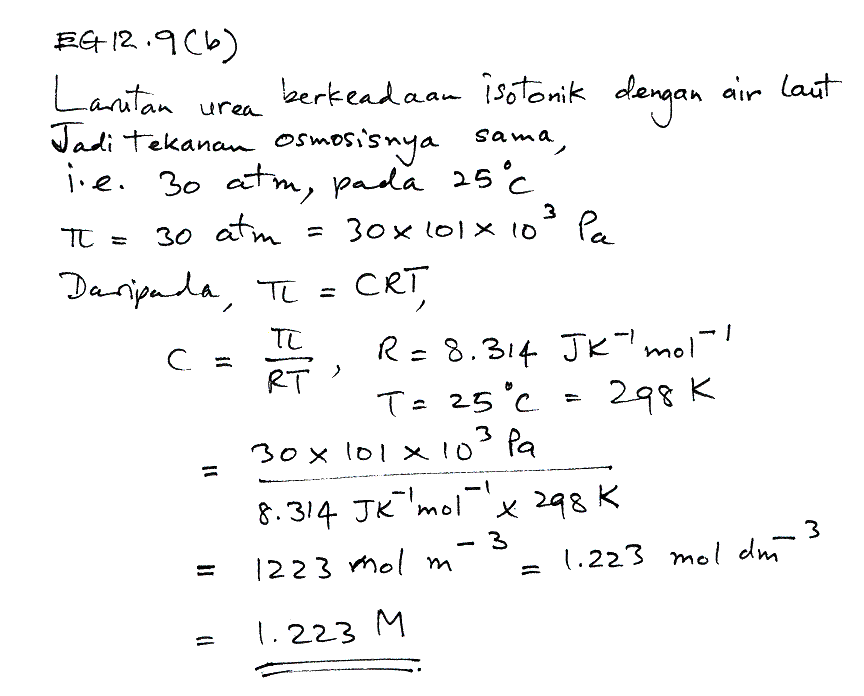 EG 12.9(b)
Larutan urea berkeadaan isotonik dengan air laut
Jadi tekanan osmosisnya sama,
i.e. 30 atm, pada 25°C
π = 30 atm = 30 x 101 x 10³ Pa
Daripada, π = CRT,
C = π/RT, R = 8.314 JK⁻¹mol⁻¹
T = 25°C = 298 K
= 30 x 101 x 10³ Pa
8.314 JK⁻¹mol⁻¹ x 298 K
= 1223 mol m⁻³ = 1.223 mol dm⁻³
= 1.223 M